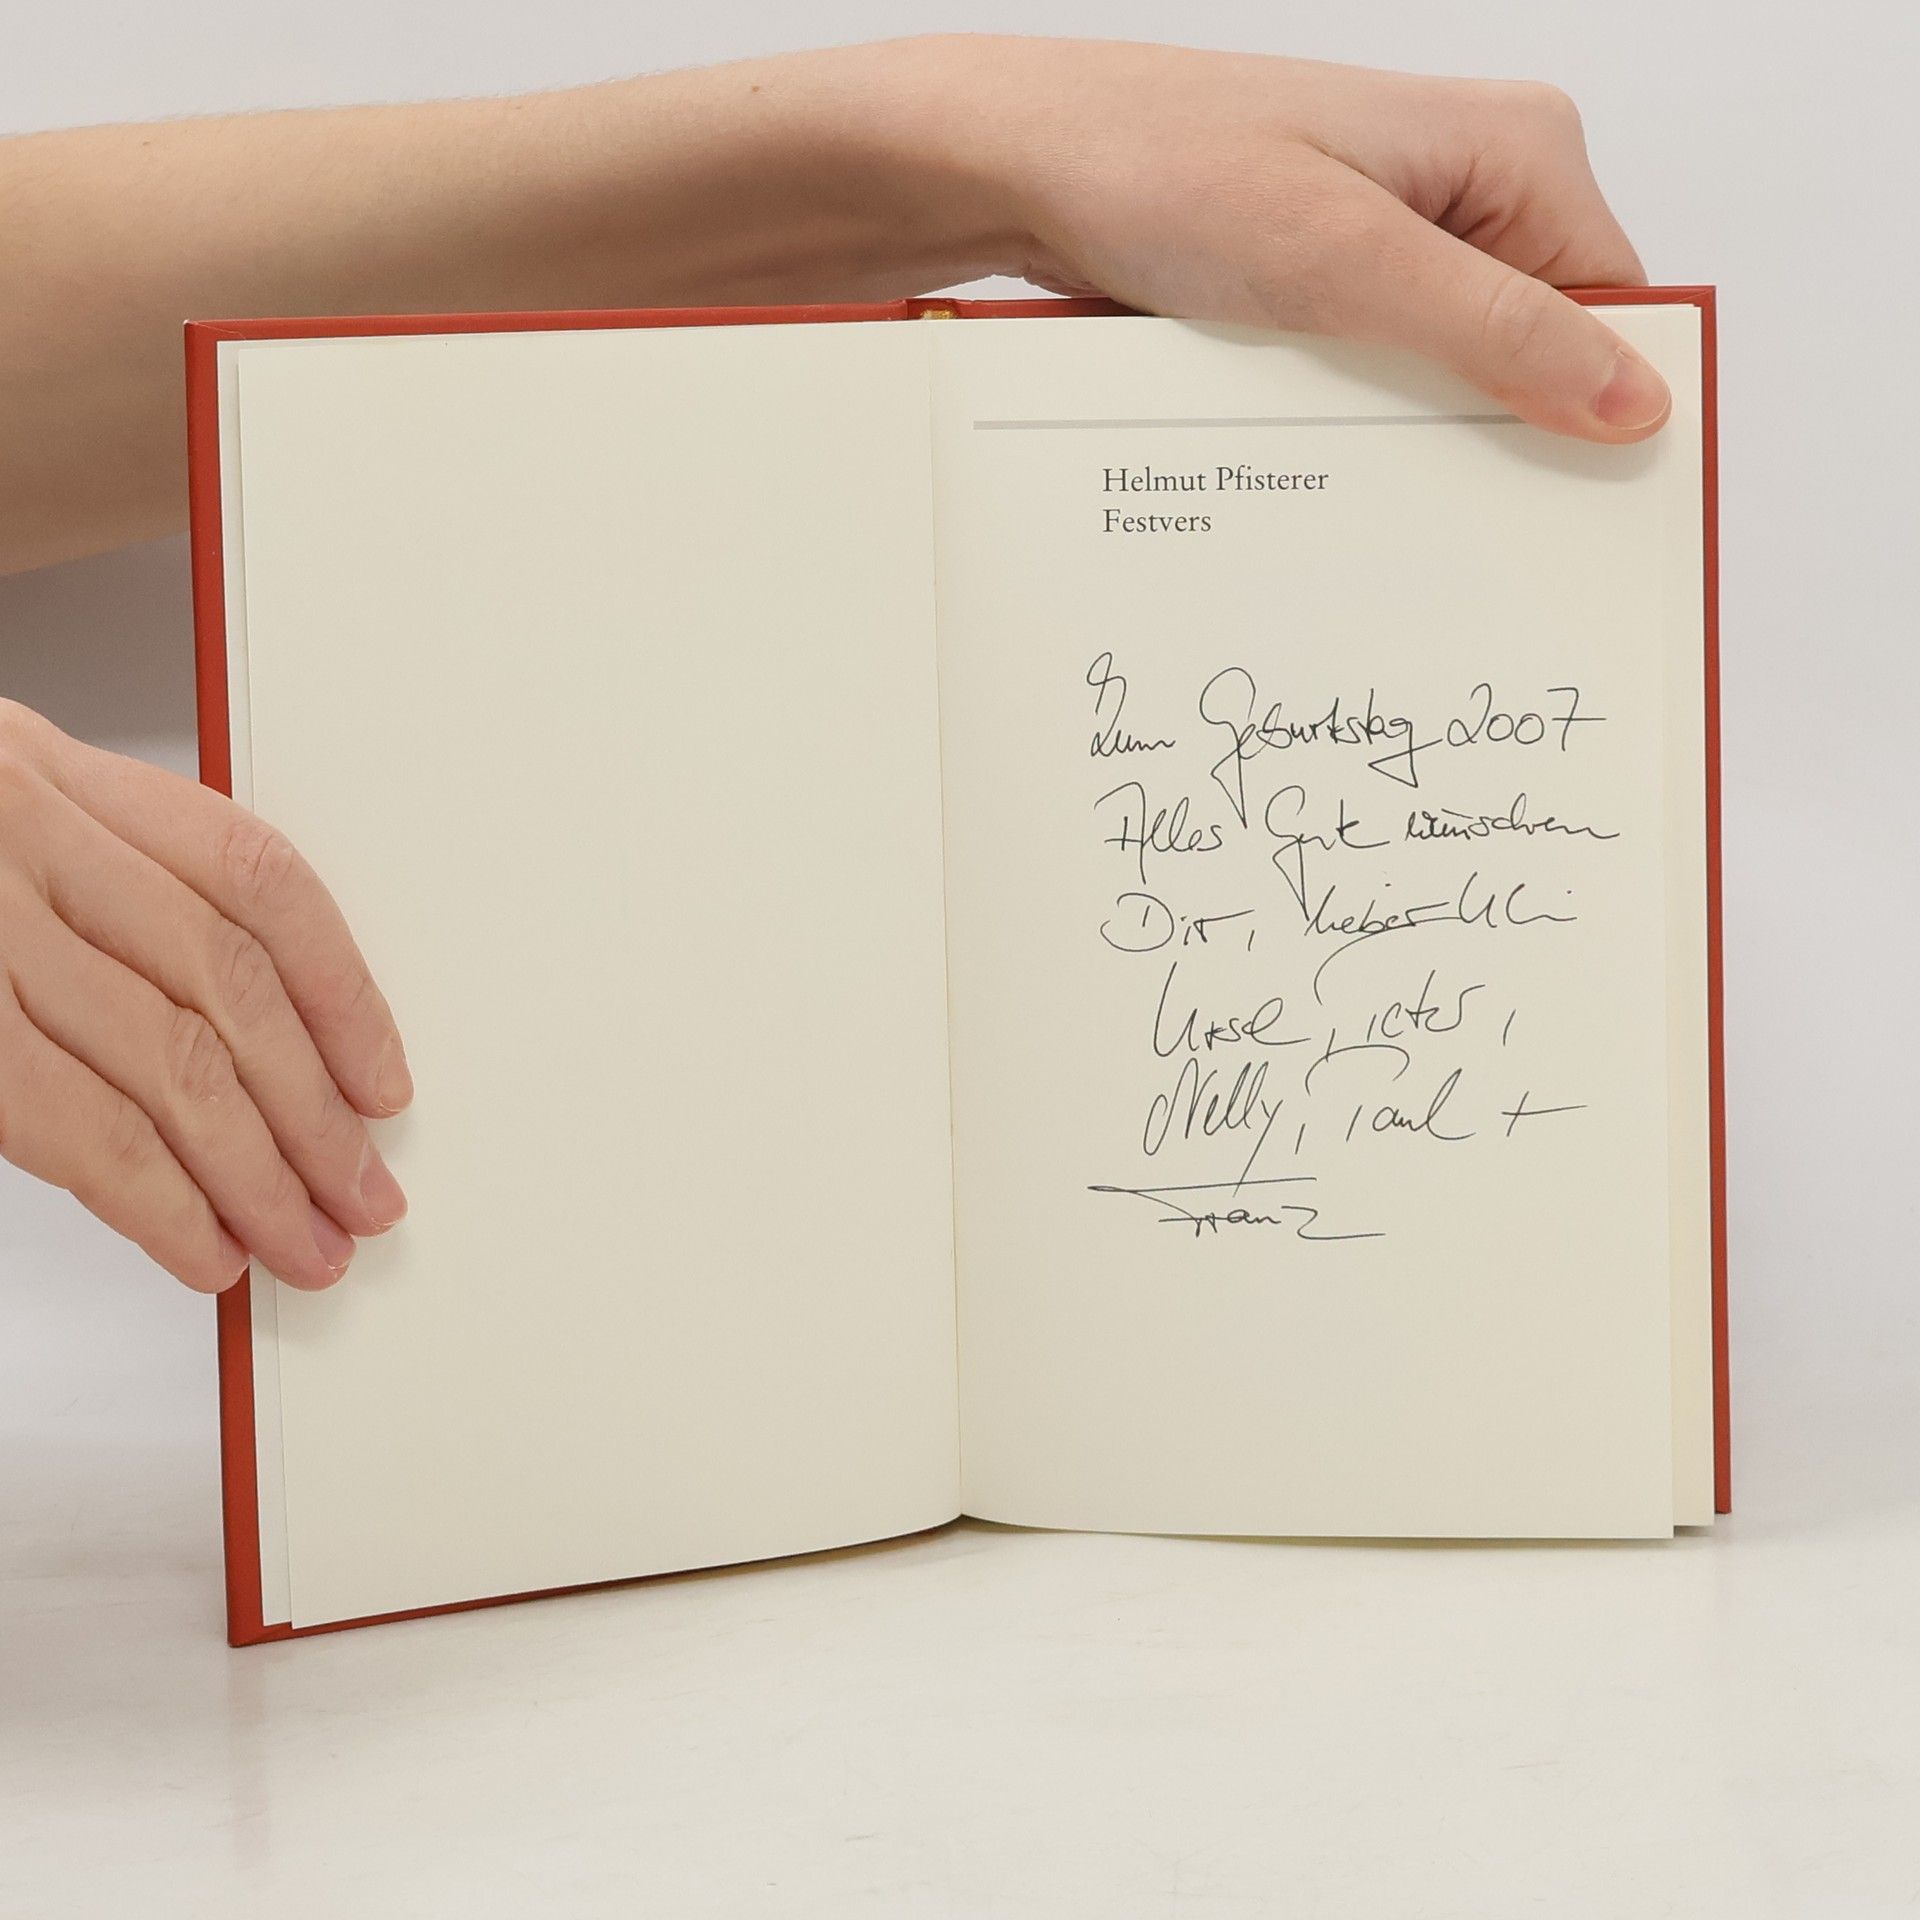 Helmut Pfisterer
Festvers
Zum Geburtstag 2007
Alles Gute wünschen
Dir, lieber Uli
Ursel, Pieter,
Nelly, Paul +
Franz